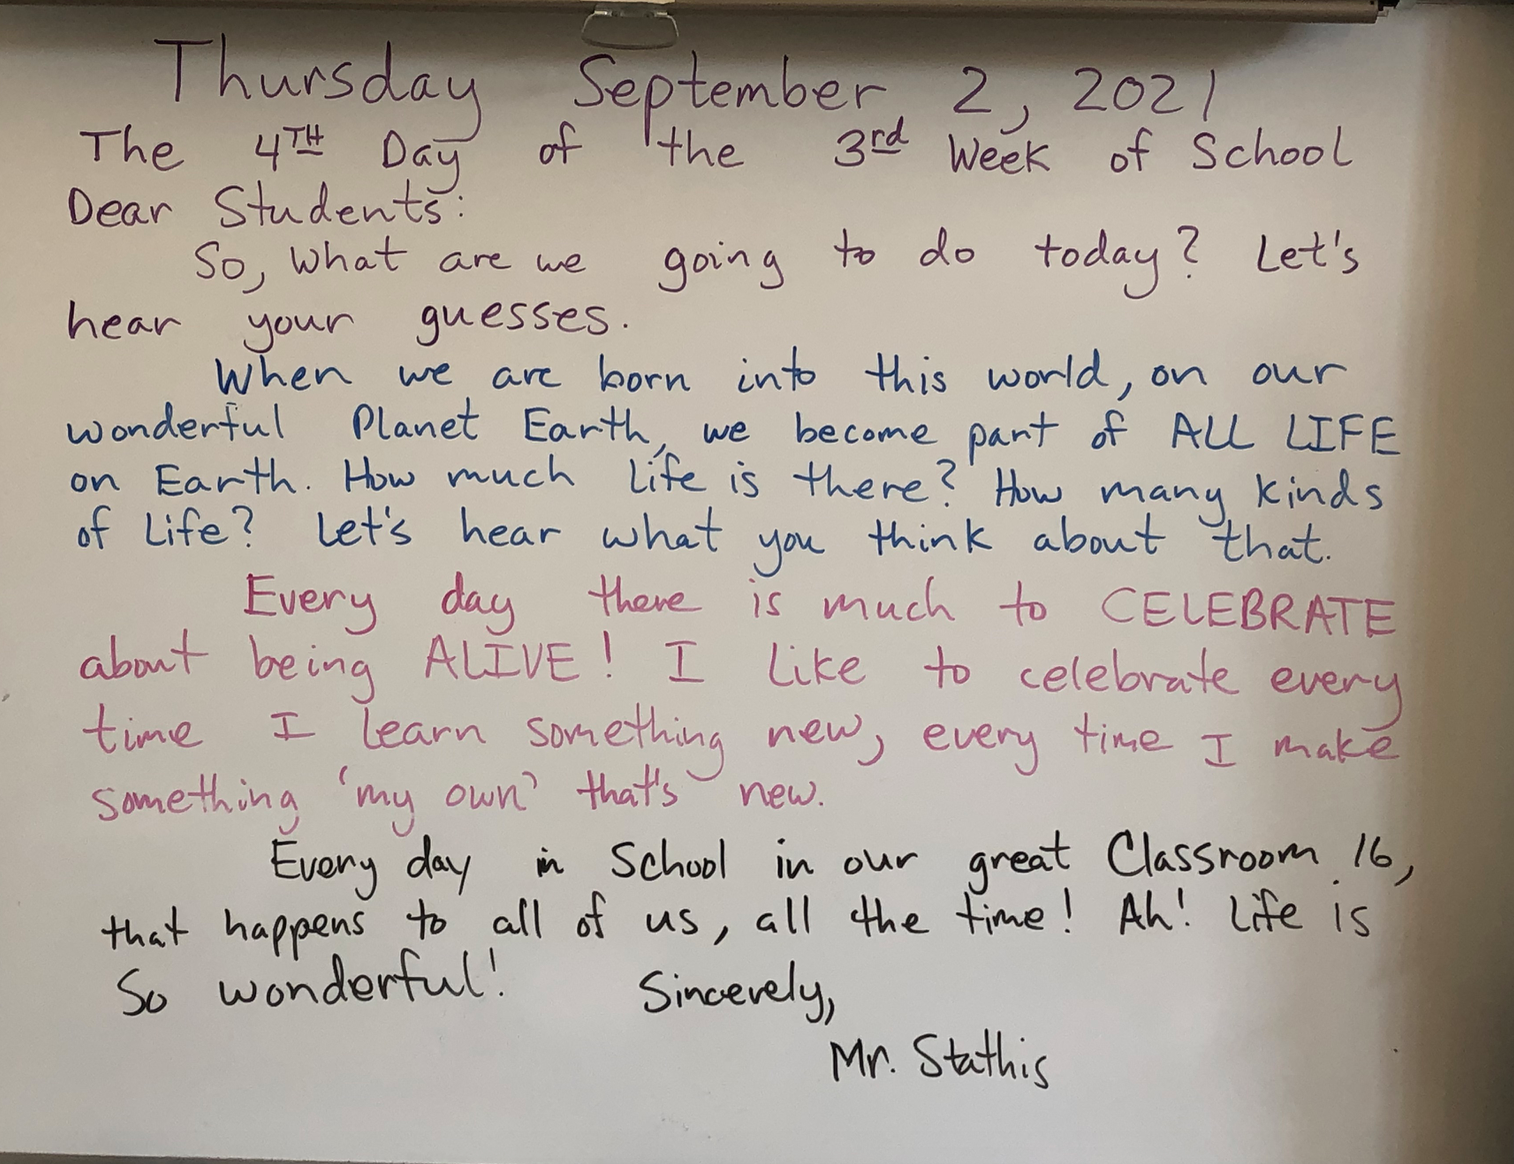 Thursday September 2, 2021
The 4TH Day of the 3rd Week of School
Dear Students:
So, what are we going to do today? Let's
hear your guesses.
When we are born into this world, on our
wonderful Planet Earth, we become part of ALL LIFE
on Earth. How much life is there? How many kinds
of Life? Let's hear what you think about that.
Every day there is much to CELEBRATE
about being ALIVE! I like to celebrate every
time I learn something new, every time I make
something 'my own' that's new.
Every day in School in our great Classroom 16,
that happens to all of us, all the time! Ah! Life is
So wonderful! Sincerely,
Mr. Stathis